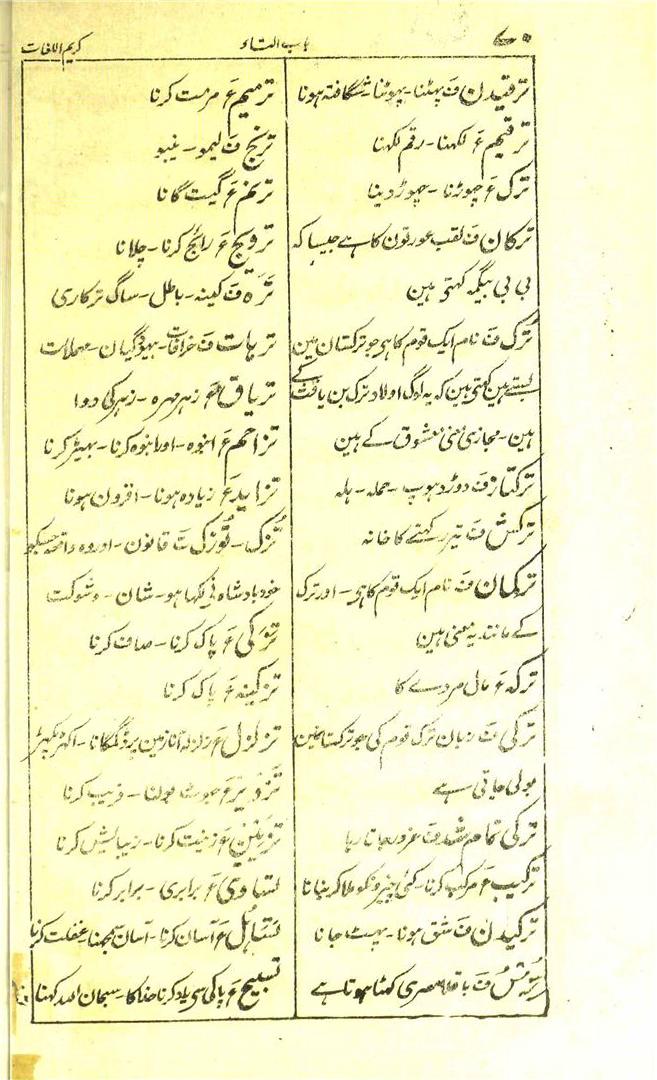 ۷۰
باب التاء
کریم اللغات
ترقیدن ف پہٹنا - پہوٹنا - شگافتہ ہونا
ترقیم ع لکہنا - رقم لکہنا
ترک ع چہوڑنا - چہوڑ دینا
ترکان ف لقب عورتون کا ہے جیسا کہ
بی بی بیگم کہتی ہین
ترک ف نام ایک قوم کا ہی جو ترکستان مین
بستے ہین کہتی ہین کہ یہ لوگ اولاد ترک بن یافث کے
ہین - مجازی معنی معشوق کے ہین
ترکتاز ف دوڑ دہوپ - حملہ - ہلہ
ترکش ف تیر رکہنے کا خانہ
ترکمان ف نام ایک قوم کا ہی - اور ترک
کے مانند یہ معنی ہین
ترکہ ع مال مردے کا
ترکی ف زبان ترک قوم کی جو ترکستانمین
بولی جاتی ہے
ترکی تمام شد ف غرور جاتا رہا
ترکیب ع مرکب کرنا - کئی چیزونکو ملا کر بنانا
ترکیدن ف شق ہونا - پہٹ جانا
ترمس ف باقلا مصری کہٹا ہوتا ہے
ترمیم ع مرمت کرنا
ترنج ف لیمو - نیبو
ترنم ع گیت گانا
ترویج ع رائج کرنا - چلانا
ترہ ف کینہ - باطل - ساگ ترکاری
ترہات ف خرافات - بیہودگیان - مہملات
تریاق مع زہر مہرہ - زہر کی دوا
تزاحم ع انبوہ - اور انبوہ کرنا - بہیڑ کرنا
تزاید ع زیادہ ہونا - افزون ہونا
تزک - توزک ت قانون - اور وہ واقعہ جسکو
خود بادشاہ نی لکہا ہو - شان - و شوکت
تزکی ع پاک کرنا - صاف کرنا
تزکیہ ع پاک کرنا
تزلزل ع زلزلہ آنا زمین پر ڈگمگانا -
تزویر ع جہوٹ بولنا - فریب کرنا
تزیین ع زینت کرنا - زیبایش کرنا
تساوی ع برابری - برابر کرنا
تساہل ع آسان کرنا - آسان سمجہنا غفلت کرنا
تسبیح ع پاکی سی یاد کرنا خدا کا - سبحان اللہ کہنا